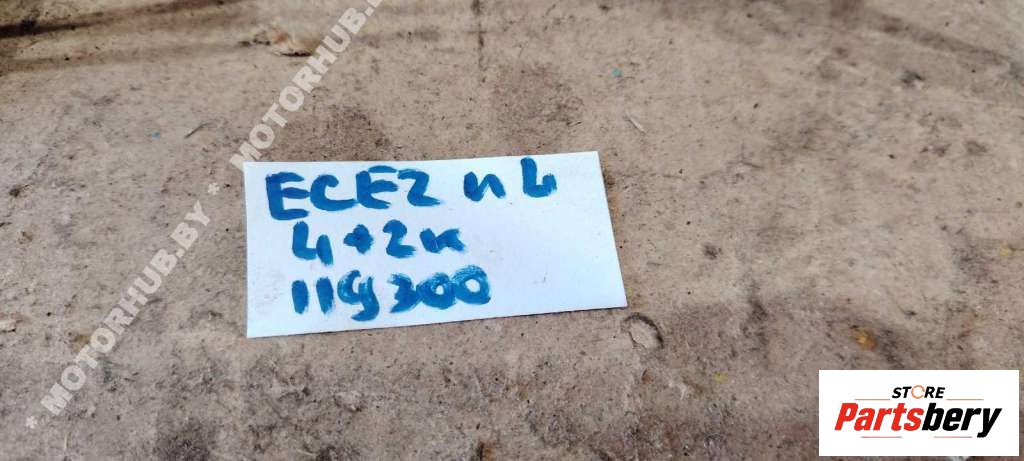 ECEZ н L
4+2к
119300
* MOTORHUB.BY * MOTORHUB.BY
STORE
Partsbery